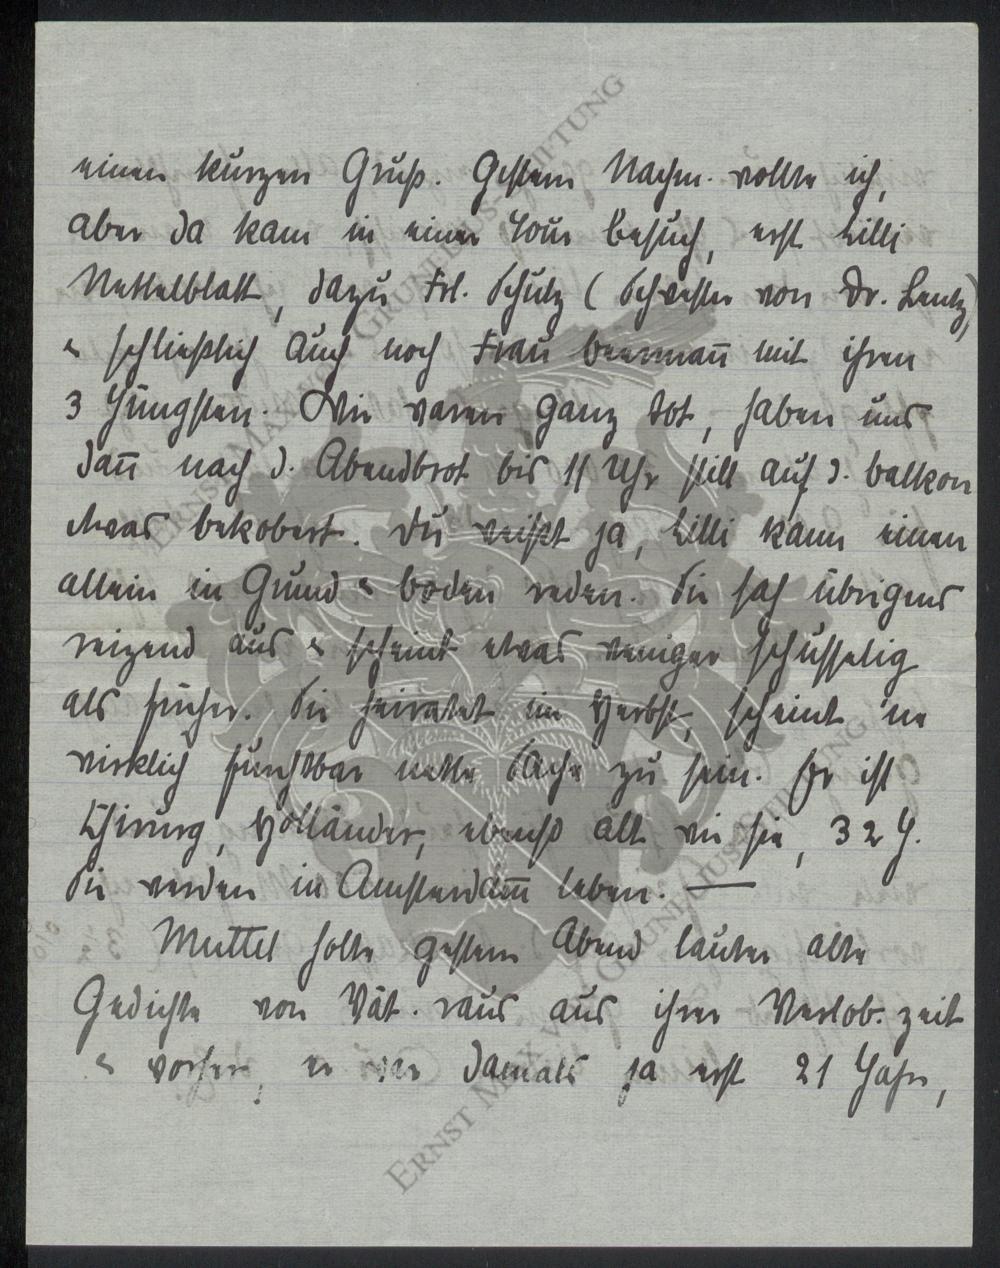 einen kurzen Gruß. Gestern Nachm. wollte ich,
aber da kam in einer Tour Besuch, erst Lilli
Nettelblatt, dazu Frl. Schütz (Schwester von Dr. Lentz)
& schließlich auch noch Frau Beermañ mit ihren
3 Jüngsten. Wir waren ganz tot, haben uns
dañ nach d. Abendbrot bis 11 Uhr still auf d. Balkon
etwas bekobert. Du weißt ja, Lilli kann einen
allein in Grund & Boden reden. Sie sah übrigens
reizend aus & scheint etwas weniger schusselig
als früher. Sie heiratet im Herbst, scheint 'ne
wirklich furchtbar nette Sache zu sein. Er ist
Chirurg, Holländer, ebenso alt wie sie, 32 J.
Sie werden in Amsterdam̄ leben. —
Muttel holte gestern Abend lauter alte
Gedichte von Vat. raus aus ihrer Verlob. zeit
& vorher, er war damals ja erst 21 Jahr,
ERNST MAX VON GRUNELIUS-STIFTUNG
ERNST MAX VON GRUNELIUS-STIFTUNG